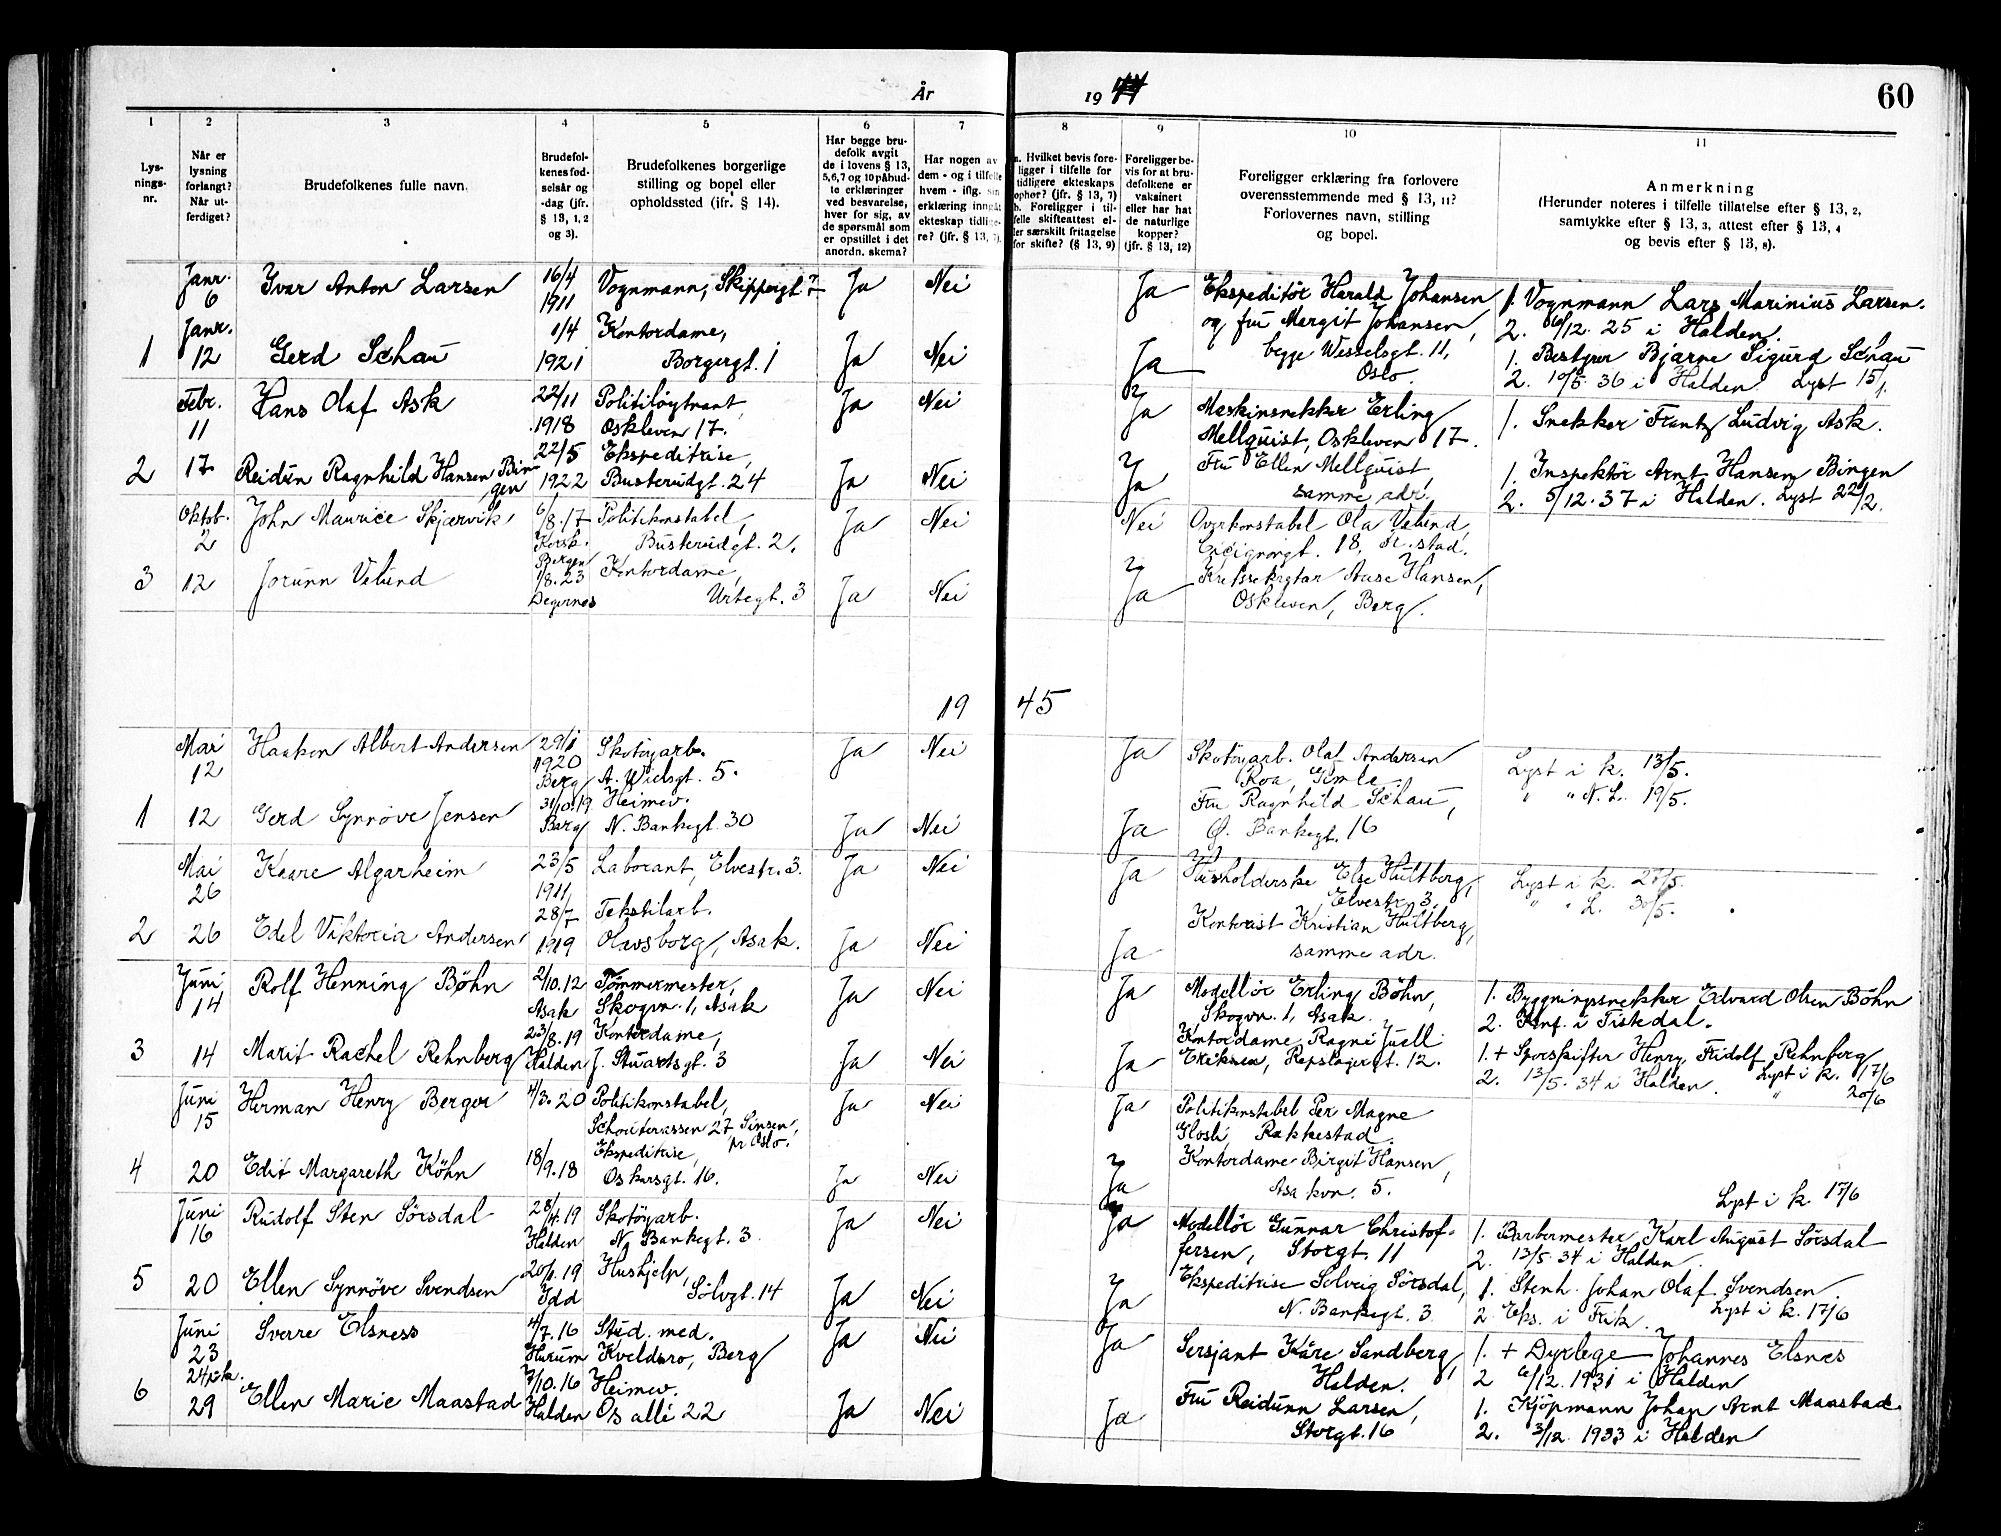 År 1944
60
1 2 3 4 5 6 7 8 9 10 11
Lys-
nings-
nr.
Når er
lysning
forlangt?
Når ut-
ferdiget?
Brudefolkenes fulle navn.
Brudefol-
kenes fød-
selsår og
-dag (jfr.
§ 13, 1, 2
og 3).
Brudefolkenes borgerlige
stilling og bopel eller
opholdssted (jfr. § 14).
Har begge bru-
defolk avgit
de i lovens § 13,
5,6,7 og 10 påbud-
te erklæringer
ved besvarelse,
hver for sig, av
de spørsmål som
er opstillet i det
anordn. skema?
Har nogen av
dem - og i tilfelle
hvem - iflg. sin
erklæring inngåt
ekteskap tidlige-
re? (jfr. § 13, 7).
a. Hvilket bevis fore-
ligger i tilfelle for
tidligere ekteskaps
ophør? (jfr. § 13, 7)
b. Foreligger i til-
felle skifteattest el-
ler særskilt fritagelse
for skifte? (§ 13, 9)
Foreligger be-
vis for at bru-
defolkene er
vaksinert
eller har hat
de naturlige
kopper?
(jfr. § 13, 12)
Foreligger erklæring fra forlovere
overensstemmende med § 13, 11?
Forlovernes navn, stilling
og bopel.
Anmerkning
(Herunder noteres i tilfelle tillatelse efter § 13, 2,
samtykke efter § 13, 3, attest efter § 13, 4
og bevis efter § 13, 8).
Janr.
6
Ivar Anton Larsen
16/4
1911
Vognmann, Skippergt. 7
Ja Nei Ja
Ekspeditør Harald Johansen
og fru Margit Johansen,
begge Wesselsgt. 11,
Oslo.
1. Vognmann Lars Marinius Larsen.
2. 6/12. 25 i Halden.
1
Janr.
12
Gerd Schau
1/4
1921
Kontordame,
Borgergt. 1
Ja Nei Ja
1. Bestyrer Bjarne Sigurd Schau
2. 10/5. 36 i Halden. Lyst 15/1.
Febr.
11
Hans Olaf Ask
22/11
1918
Politiløytnant,
Oskleven 17.
Ja Nei Ja
Maskinsnekker Erling
Mellquist, Oskleven 17.
1. Snekker Frantz Ludvig Ask.
2
17
Reidun Ragnhild Hansen Bin
gen
22/5
1922
Ekspeditrise,
Busterudgt. 24
Ja Nei Ja
Fru Ellen Mellquist,
samme adr.
1. Inspektør Arnt Hansen Bingen
2. 5/12. 37 i Halden. Lyst 22/2.
Oktob.
2
John Maurice Skjærvik,
6/8.17
Bergen
Politikonstabel,
Busterudgt. 2.
Ja Nei Nei
Overkonstabel Ola Velund,
Cicignongt. 18, Fr.stad.
3
12
Jorunn Velund
1/8. 23
Degernes
Kontordame,
Urtegt. 3
Ja Nei Ja
Aase Hansen,
Oskleven, Berg.
19 45
Mai
12
Haakon Albert Andersen
29/1
1920
Berg
Skotøyarb.
A. Wielsgt. 5.
Ja Nei Ja
Skotøyarb. Olaf Andersen
Roa, Gimle.
Lyst i k. 13/5.
" " N.L. 19/5.
1
12
Gerd Synnöve Jensen
Berg
Heimev.
N. Bankegt. 30
Ja Nei Ja
Fru Ragnhild Schau,
Ø. Bankegt. 16
Mai
26
Kaare Algarheim
23/5
1911
Laborant, Elvestr. 3.
Ja Nei Ja
Husholderske Else Hultberg,
Elvestr. 3.
Lyst i k. 27/5.
" " L. 30/5.
2
26
Edel Viktoria Andersen
28/7
1919
Tekstilarb.
Olavsborg, Asak.
Ja Nei Ja
Kontorist Kristian Hultberg,
samme adr.
Juni
14
Rolf Henning Böhn
2/10.12
Asak
Tömmermester,
Skogvn. 1, Asak
Ja Nei Ja
Modellör Erling Böhn,
Skogvn. 1, Asak.
1. Byggningssnekker Edvard Olsen Böhn
2. Knf. i Tistedal.
3
14
Marit Rachel Rehnberg
23/8.19
Halden
Kontordame,
J. Stuartsgt. 3
Ja Nei Ja
Kontordame Ragni Juell
Eriksen, Repslagergt. 12.
1. + Sporskifter Henry Fridolf Rehnberg
2. 13/5. 34 i Halden. Lyst i k. 17/6
" 20/6
Juni
15
Herman Henry Berger
4/3. 20
Politikonstabel,
Schouterrassen 27 Sinsen,
pr Oslo.
Ja Nei Ja
Politikonstabel Per Magne
Glosli, Rakkestad.
4
20
Edit Margareth Köhn
18/9.18
Ekspeditrise,
Oskarsgt. 16.
Ja Nei Ja
Kontordame Birgit Hansen,
Asakvn. 5.
Lyst i k 17/6
Juni
16
Rudolf Sten Sörsdal
28/4.19
Halden
Skotøyarb.
N. Bankegt. 3.
Ja Nei Ja
Modellör Gunnar Christof-
fersen, Storgt. 11
1. Barbermester Karl August Sörsdal
2. 13/5. 34 i Halden.
5
20
Ellen Synnöve Svendsen
Idd
Hushjelp,
Sölvgt. 14
Ja Nei Ja
Ekspeditrise Solveig Sörsdal,
N. Bankegt. 3
1. Stenh. Johan Olaf Svendsen.
2 Eks. i Frik. Lyst i k. 17/6
Juni
23
Sverre Elsness
4/7.16
Hurum
Stud. med.
Kveldsro, Berg
Ja Nei Ja
Sersjant Kåre Sandberg,
Halden.
1. + Dyrlege Johannes Elsnes
2 6/12. 1931 i Halden
6
29
Ellen Marie Maastad
3/10.16
Halden
Heimev.
Os allé 22
Ja Nei Ja
Fru Reidunn Larsen,
Storgt. 16
1. Kjöpmann Johan Arnt Maastad
2. 3/12. 1933 i Halden